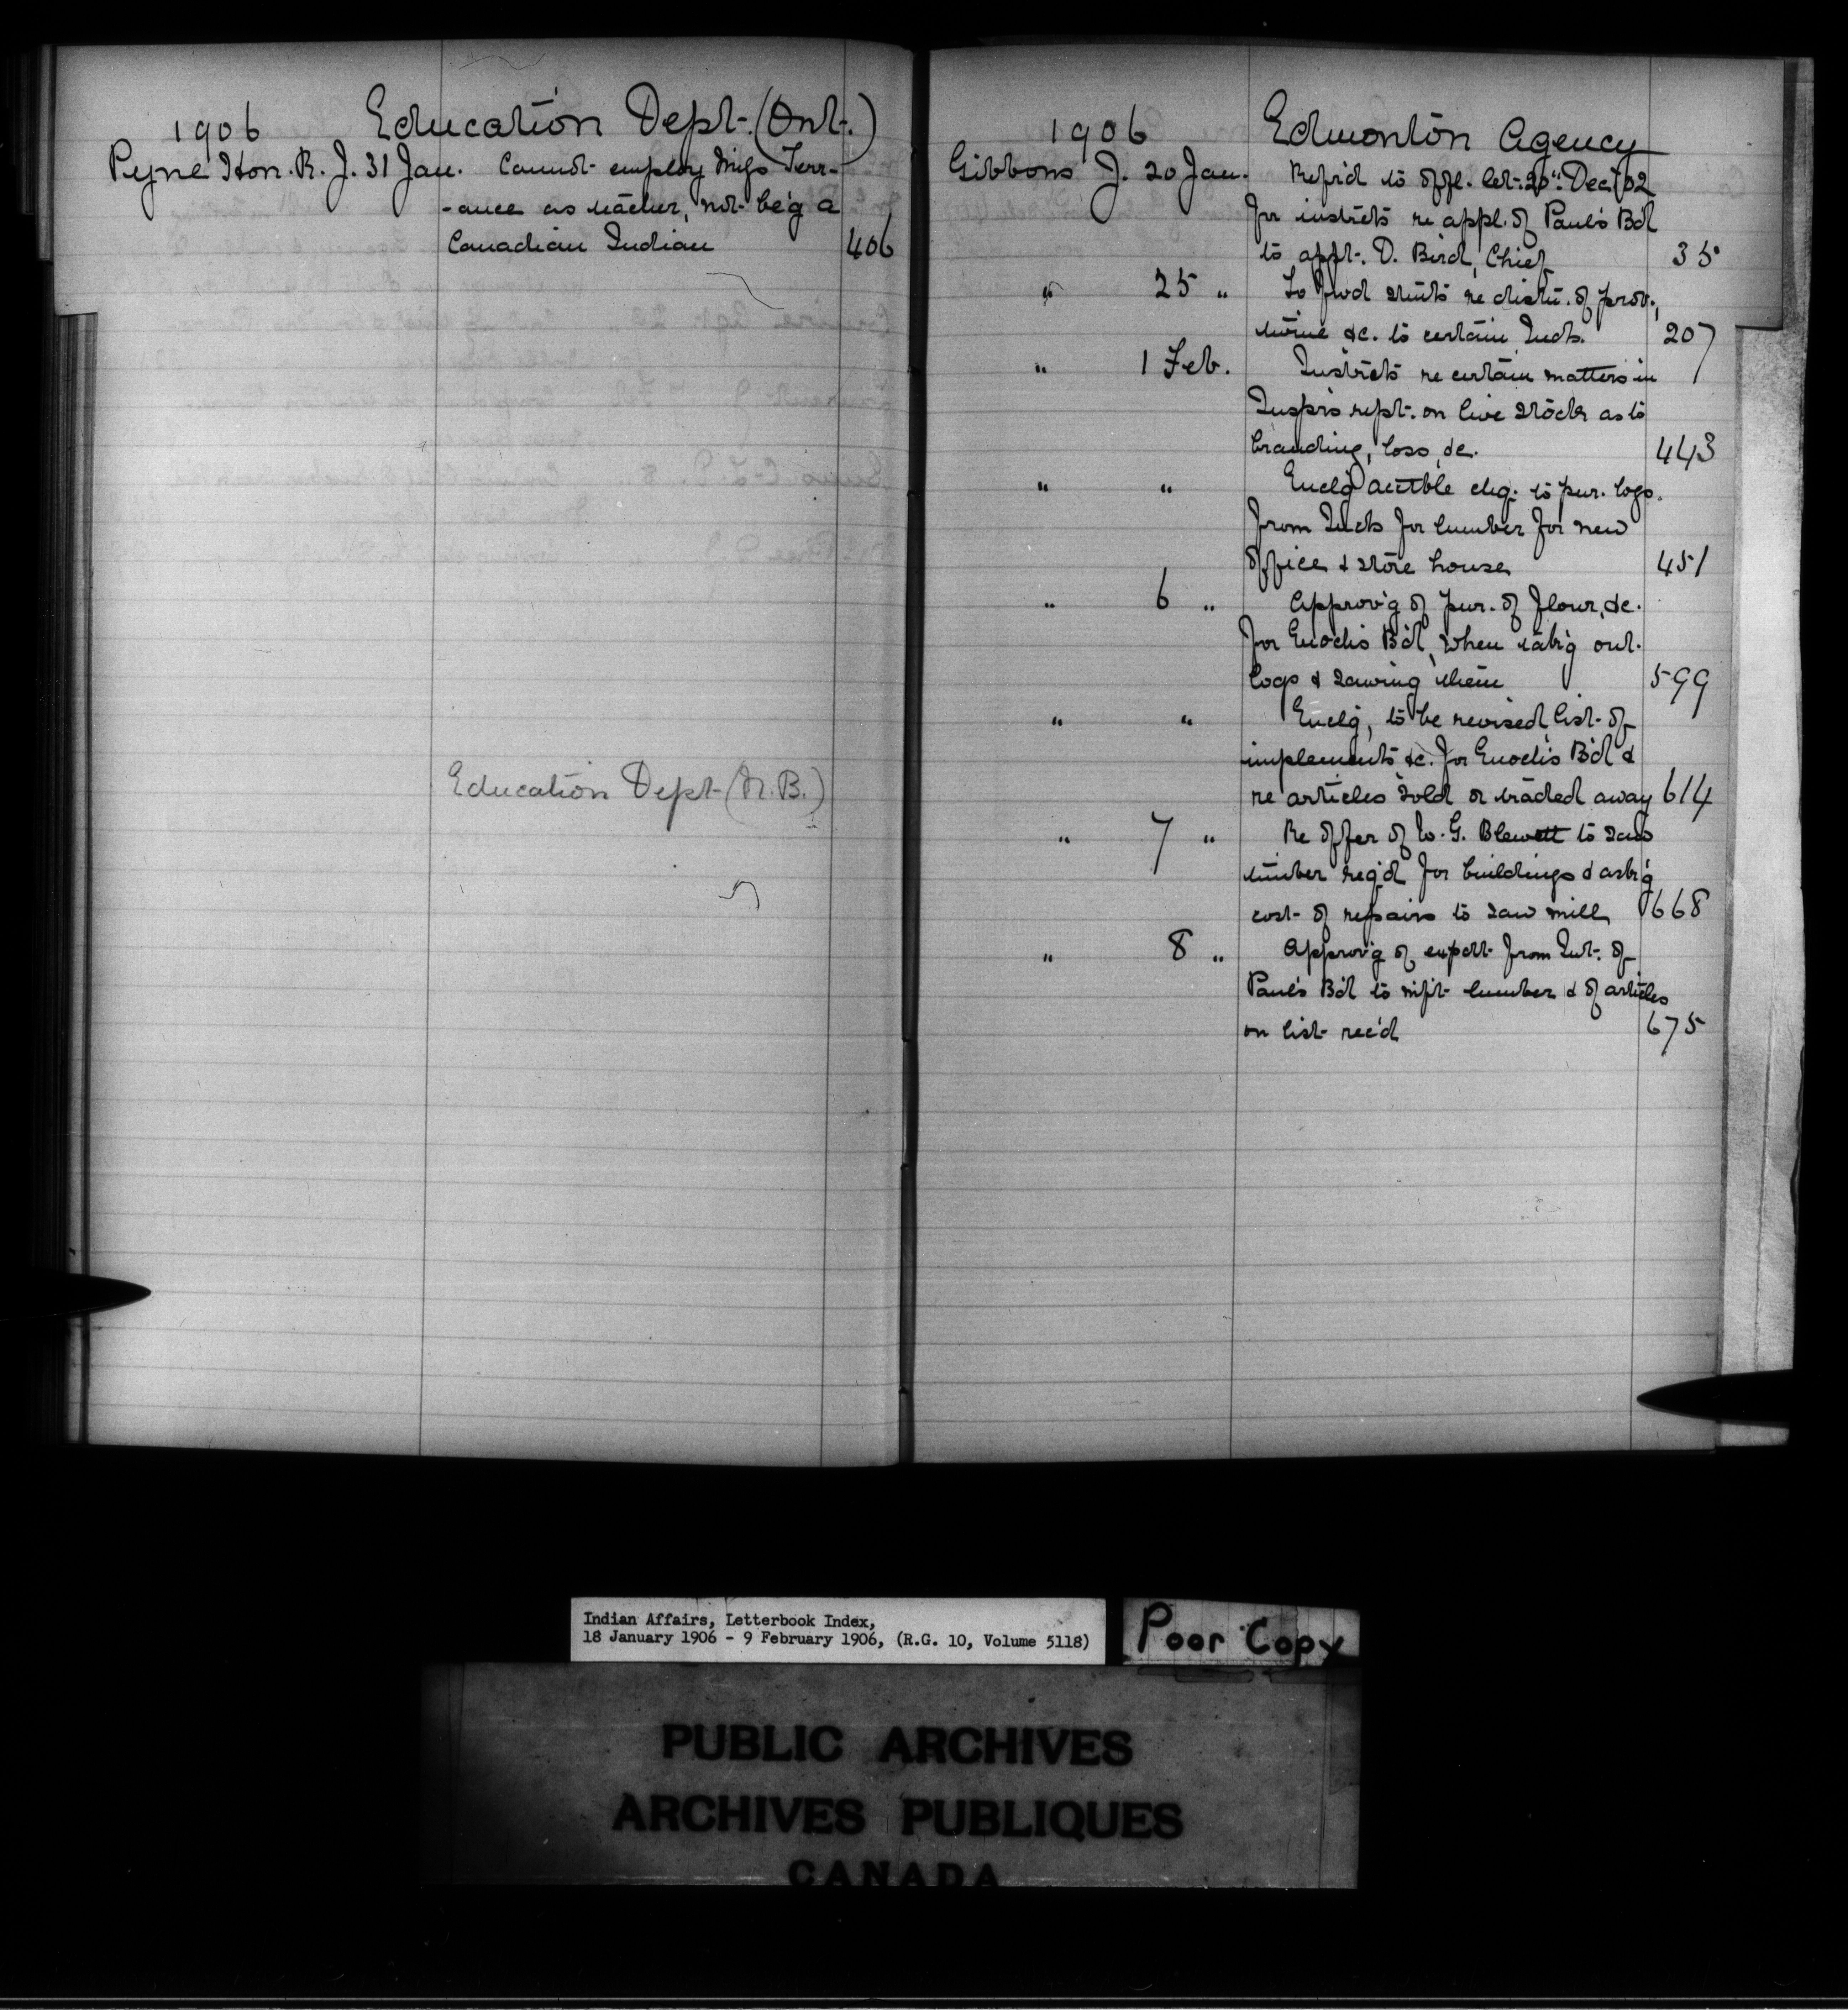 1906 Education Dept. (Ont.)
Pyne Hon. R. J. 31 Jan. Cannot employ Miss Terr-
-ance as teacher, not be'g a
Canadian Indian 406
Education Dept (N.B.)
1906 Edmonton Agency
Gibbons J. 20 Jan. Ref'r'd to offl. let. 20" Dec/02
for instrcts re appl. of Paul's B'd
to appt. D. Bird, Chief 35
" 25 " To fwd stmts re distn. of prov.,
twine &c. to certain Inds. 207
" 1 Feb. Instrcts re certain matters in
Insp's rept. on live stock as to
branding, loss, &c. 443
" " Encl'g acctble chq. to pur. logs
from Inds for lumber for new
office & store house 451
" 6 " Approv'g of pur. of flour, &c.
for Enoch's B'd, when tak'g out
logs & sawing them 599
" " Encl'g, to be revised, list of
implements &c. for Enoch's B'd &
re articles sold or traded away 614
" 7 " Re offer of W. G. Blewett to saw
timber req'd for buildings & ask'g
cost of repairs to saw mill 668
" 8 " Approv'g of expdt. from Int. of
Paul's B'd to mf't lumber & of articles
on list rec'd 675
Indian Affairs, Letterbook Index,
18 January 1906 - 9 February 1906, (R.G. 10, Volume 5118)
Poor Copy
PUBLIC ARCHIVES
ARCHIVES PUBLIQUES
CANADA